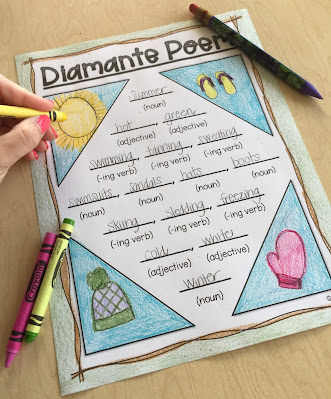 Diamante Poem
Summer
(noun)
hot, green
(adjective) (adjective)
swimming, tanning, sweating
(-ing verb) (-ing verb) (-ing verb)
swimsuits, sandals, hats, boots
(noun) (noun) (noun) (noun)
skiing, sledding, freezing
(-ing verb) (-ing verb) (-ing verb)
cold, white
(adjective) (adjective)
Winter
(noun)
Crayola